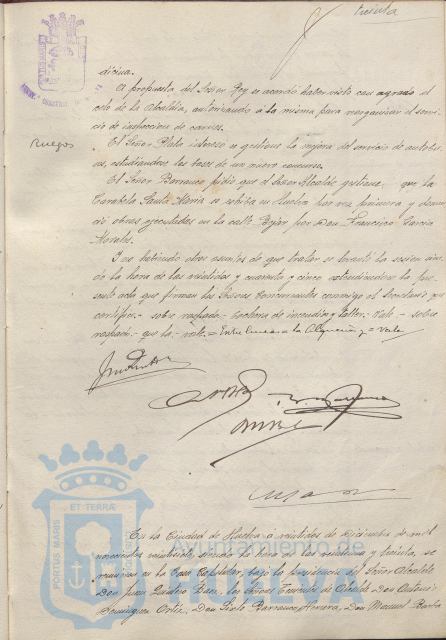 treinta
dicina.
A propuesta del Señor Rey se acordó haber visto con agrado el
celo de la Alcaldía, autorizando á la misma para reorganizar el servi-
cio de inspección de carnes.
Ruegos
El Señor Plata interesó se gestione la mejora del servicio de autobu-
ses, estudiandose las bases de un nuevo concurso.
El Señor Barranco pidió que el Señor Alcalde gestione que la
Carabela Santa María se exhiba en Huelva por vez primera y denun-
ció obras ejecutadas en la calle Béjar por Don Francisco García
Morales.
Y no habiendo otros asuntos de que tratar se levantó la sesión sien-
do la hora de las veintidós y cuarenta y cinco extendiendose la pre-
sente acta que firman los Señores Concurrentes conmigo el Secretario que
certifico.- sobre raspado - Vale - sobre
raspado - que la - vale. = Entre lineas a la Alquería y = Vale
ET TERRÆ
PORTUS MARIS
Ayuntamiento de
HUELVA
En la Ciudad de Huelva a veintidos de Diciembre de mil
novecientos veintisiete, siendo la hora de las veintiuna y treinta, se
reunieron en la Casa Capitular, bajo la Presidencia del Señor Alcalde
Don Juan Quintero Báez, los Señores Tenientes de Alcalde Don Antonio
Domínguez Ortiz, Don Sixto Barranco Herrera, Don Manuel